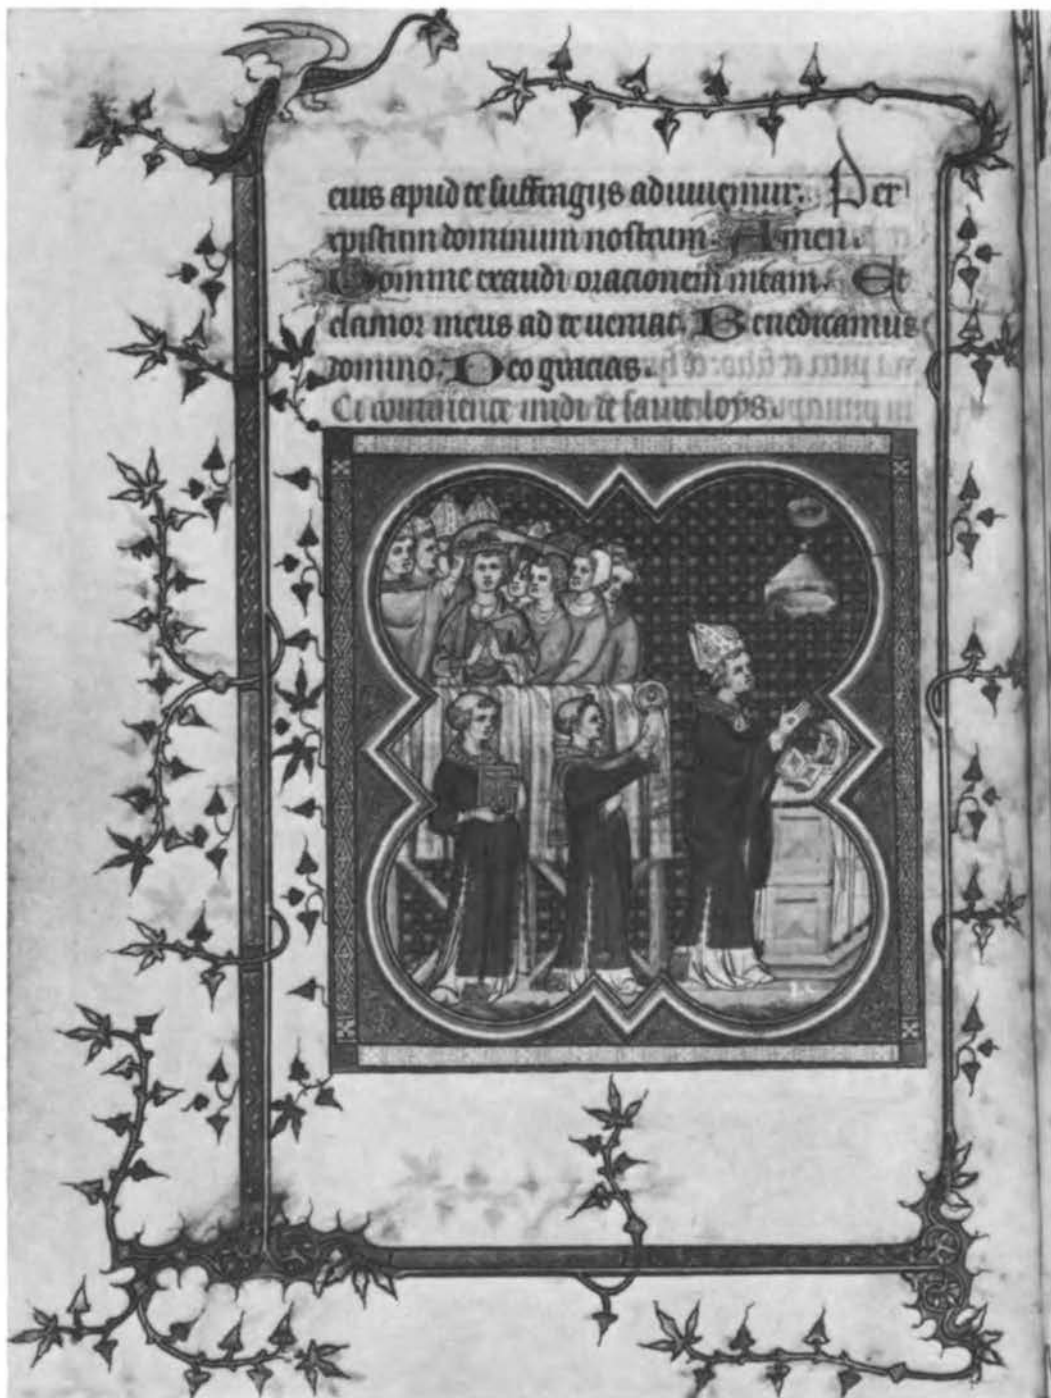 eius apud te suffragijs adiuuemur. Per
xpistum dominum nostrum. Amen.
Domine exaudi orationem meam. Et
clamor meus ad te ueniat. Benedicamus
domino. Deo gracias.
Ci commence midi de saint loys.